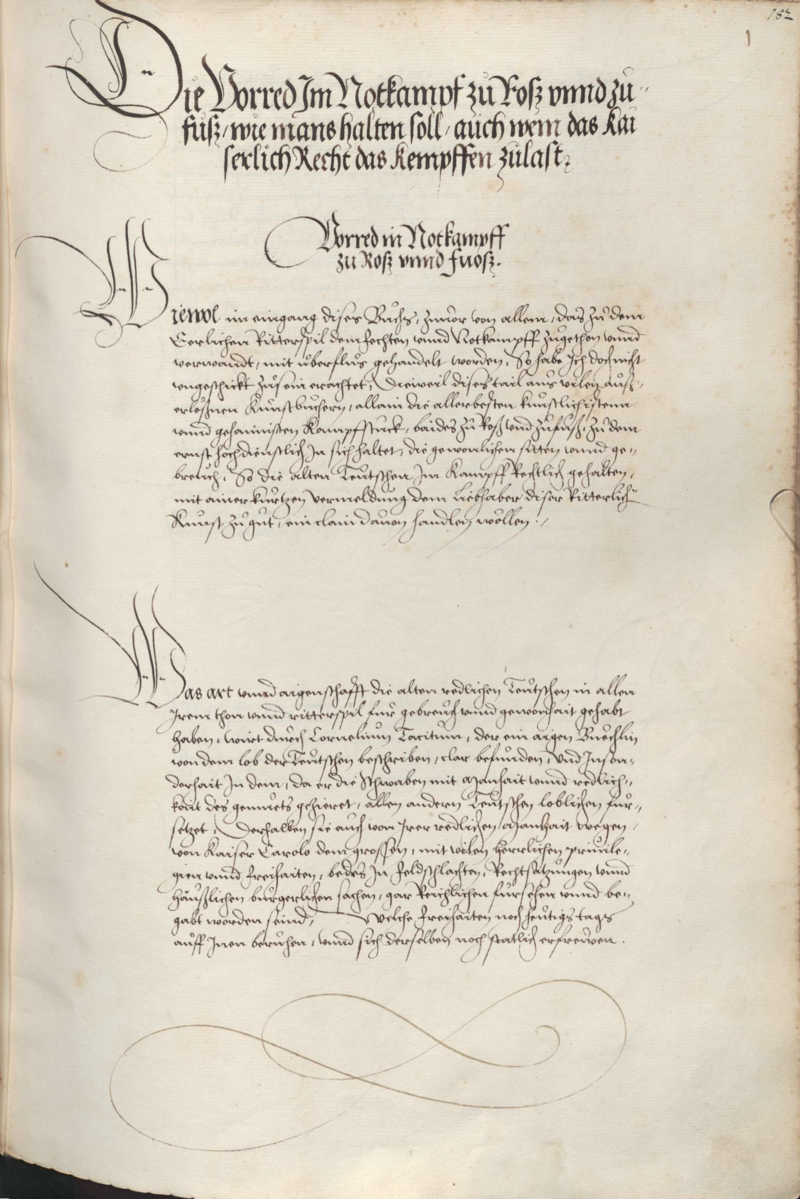 182
1
Die Vorred Im Notkampf zu Roß vnnd zu
fuß, wie mans halten soll, auch wem das Kai
serlich Recht das Kempffen zulast.
Vorred in Notkampff
zu Roß vnnd fuoß.
Wiewol im eingang dises Buchs, zuuor von allem, das zu dem
Eerlichen Ritterspil dem fechten vnnd Notkampff zugethon vnnd
verwandt, mit überfluß gehandelt worden, So habe Ich doch nicht
vngeschickt zusein erachtet, Dieweil diser tail aus vilen auß-
erleßnen Kunstbuchern, allain die allerbesten kunstlichisten
vnnd gehaimisten Kampfstuck, baides zu Roß vnd zufuß, zu dem
ernst hochdienstlich In sich haltet, die gewonlichen sitten vnnd ge-
breuch, So die alten Teutschen Im Kampff Rechtlich gehalten,
mit ainer kurtzen vermeldung dem Liebhaber diser Ritterlich
Kunst zu gut, ein clain dauon handlen wöllen.
Was art vnnd aigenschafft die alten redlichen Teutschen in allen
Irem thon vnnd ritterspil fur gebreuch vnnd gewonhait gehabt
haben, wirt durch Cornelium Tacitum, der ein aigen Buechlin
von dem lob der Teutschen beschriben, clar befunden, Vnd In son-
derhait In dem, da er die Schwaben mit Manhait vnnd redlich-
kait des gemuets gezieret, allen andern Teutschen loblichen fur-
setzet, Derhalben sie auch von Irer redlichen Manhait wegen,
von Kaiser Carolo dem grossen, mit vilen herrlichen priuile-
gien vnnd freihaiten, bedes In feldschlachten, Rechtsatzungen vnnd
häußlichen burgerlichen sachen, gar Reichlichen fursehen vnnd be-
gabt worden seind, Welche freihaiten noch heutigs tags
auff Inen beruhen, vnnd sich derselben noch statlich erfrewen.